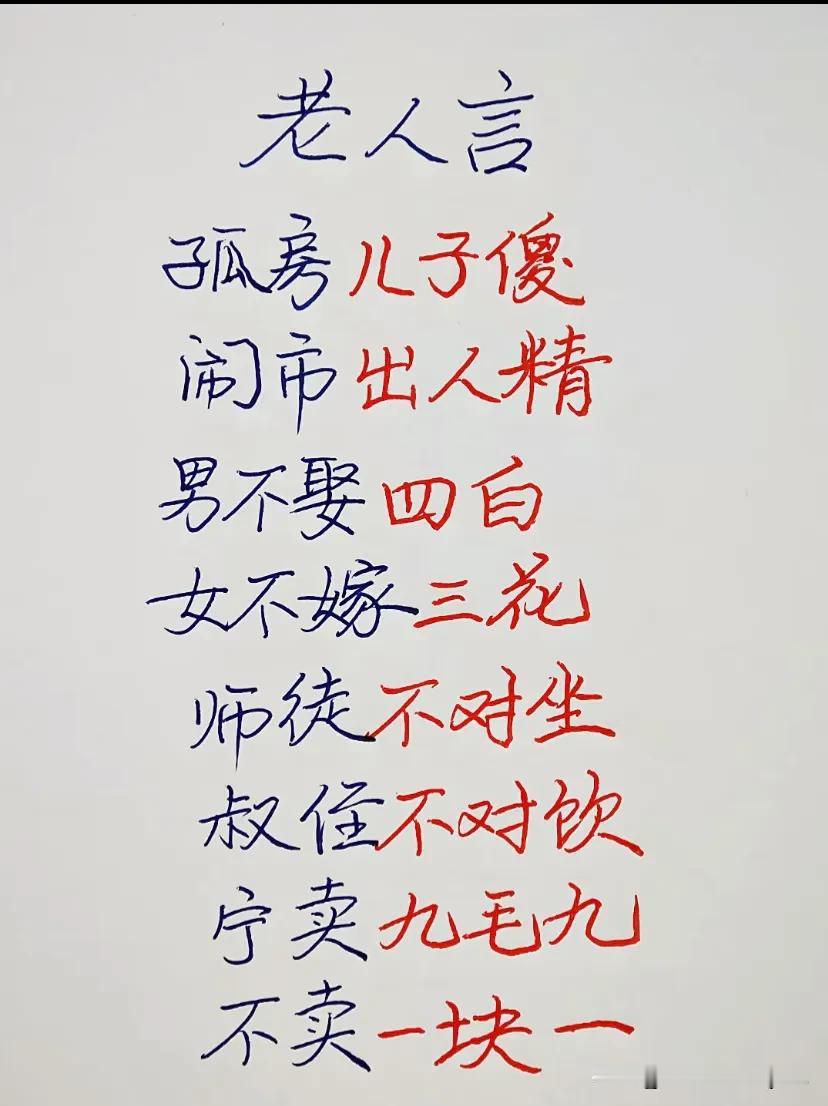 老人言
孤房儿子傻
闹市出人精
男不娶四白
女不嫁三花
师徒不对坐
叔侄不对饮
宁卖九毛九
不卖一块一